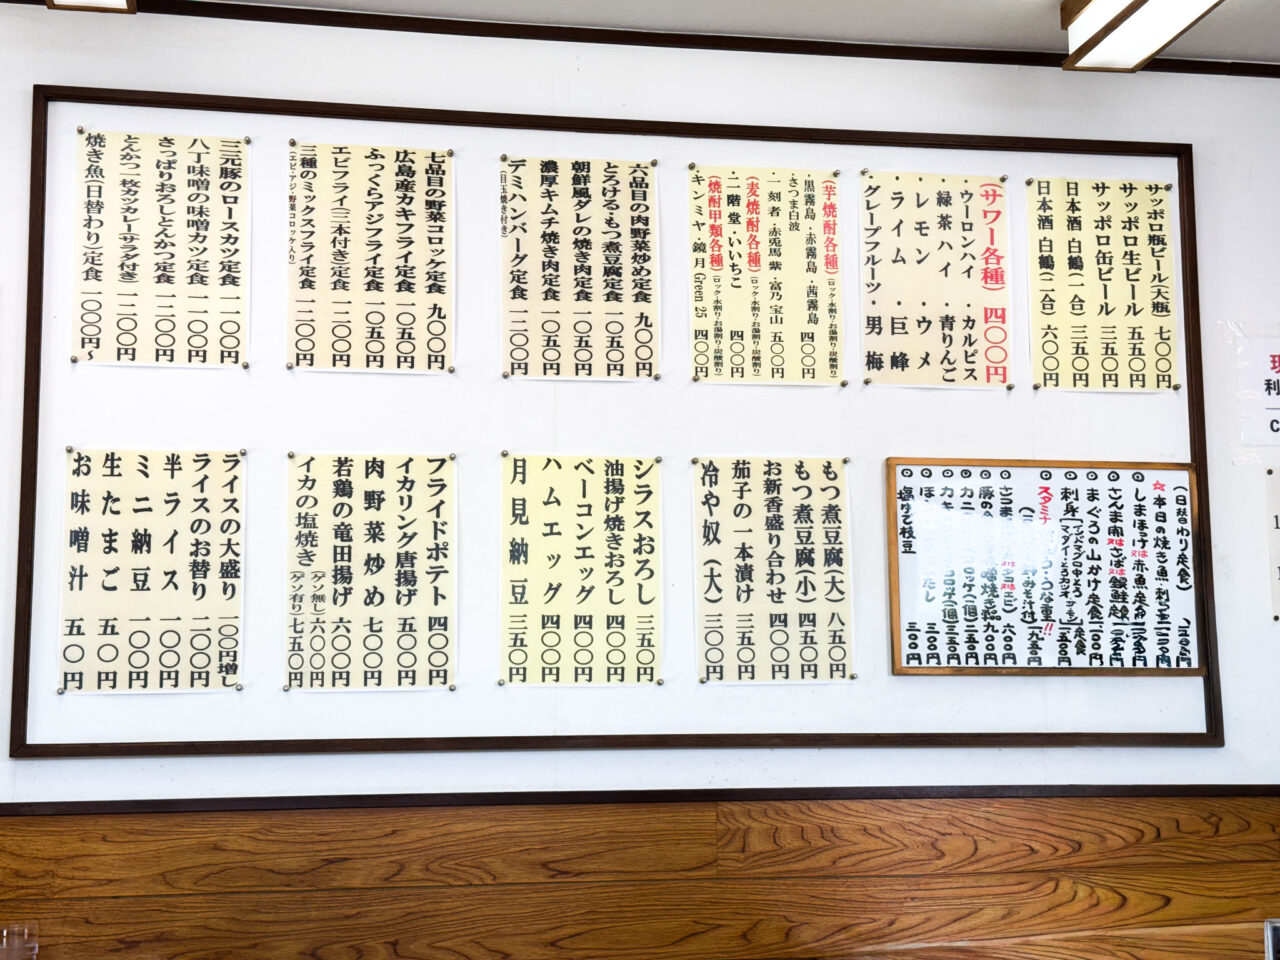 サッポロ瓶ビール(大瓶) 七〇〇円
サッポロ生ビール 五五〇円
サッポロ缶ビール 三五〇円
日本酒 白鶴(一合) 三五〇円
日本酒 白鶴(二合) 六〇〇円
(サワー各種) 四〇〇円
・ウーロンハイ ・カルピス
・緑茶ハイ ・青りんご
・レモン ・ウメ
・ライム ・巨峰
・グレープフルーツ ・男梅
(芋焼酎各種)(ロック・水割り・お湯割り・炭酸割り)
・黒霧島・赤霧島・茜霧島 四〇〇円
・さつま白波
・一刻者・赤兎馬 紫・富乃宝山 五〇〇円
(麦焼酎各種)(ロック・水割り・お湯割り・炭酸割り)
・二階堂・いいちこ 四〇〇円
(焼酎甲類各種)(ロック・水割り・お湯割り・炭酸割り)
・キンミヤ・鏡月 Green 25 四〇〇円
六品目の肉野菜炒め定食 九〇〇円
とろける・もつ煮豆腐定食 一〇五〇円
朝鮮風ダレの焼き肉定食 一〇〇〇円
濃厚キムチ焼き肉定食 一〇五〇円
デミハンバーグ定食 一二〇〇円
(目玉焼き付き)
七品目の野菜コロッケ定食 九〇〇円
広島産カキフライ定食 一〇五〇円
ふっくらアジフライ定食 一〇五〇円
エビフライ(三本付き)定食 一二〇〇円
三種のミックスフライ定食 一二〇〇円
(エビ・アジ・野菜コロッケ入り)
三元豚のロースカツ定食 一一〇〇円
八丁味噌の味噌カツ定食 一一〇〇円
さっぱりおろしとんかつ定食 一二〇〇円
とんかつ一枚カツカレー(サラダ付き) 一二〇〇円
焼き魚(日替わり)定食 一〇〇〇円〜
(日替わり定食)
☆本日の焼き魚・刺
しまほっけ
は赤魚定食
さんま
はさば
は銀鮭定
まぐろの山かけ定食
刺身
定食
スタミナ
うな重!!
塩ゆで枝豆 三〇〇円
もつ煮豆腐(大) 八五〇円
もつ煮豆腐(小) 四五〇円
お新香盛り合わせ 四〇〇円
茄子の一本漬け 三五〇円
冷や奴(大) 三〇〇円
シラスおろし 三五〇円
油揚げ焼きおろし 四〇〇円
ベーコンエッグ 四〇〇円
ハムエッグ 四〇〇円
月見納豆 三五〇円
フライドポテト 四〇〇円
イカリング唐揚げ 五〇〇円
肉野菜炒め 七〇〇円
若鶏の竜田揚げ 六〇〇円
イカの塩焼き (ゲソ無し)六〇〇円 (ゲソ有り)七五〇円
ライスの大盛り 一〇〇円増し
ライスのお替り 二〇〇円
半ライス 一〇〇円
ミニ納豆 一〇〇円
生たまご 五〇円
お味噌汁 五〇円